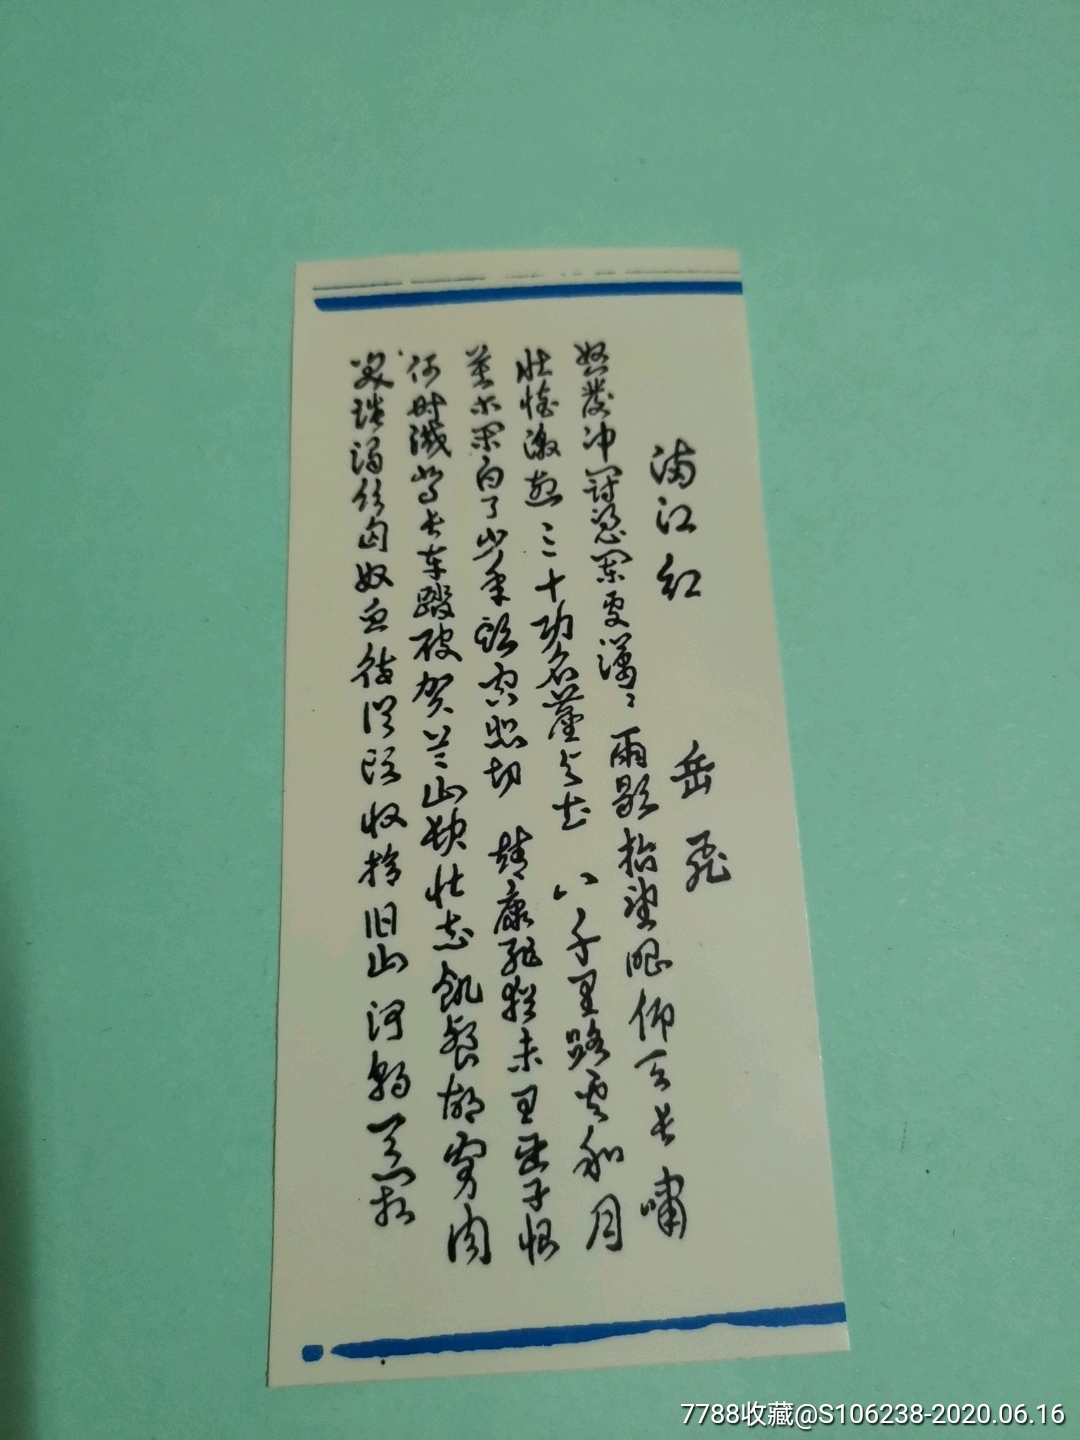 满江红 岳飞
怒发冲冠凭阑处潇〻雨歇抬望眼仰天长啸
壮怀激烈三十功名尘与土 八千里路云和月
莫等闲白了少年头空悲切 靖康耻犹未雪臣子恨
何时灭驾长车踏破贺兰山缺壮志饥餐胡虏肉
笑谈渴饮匈奴血待从头收拾旧山河朝天阙
7788收藏@S106238-2020.06.16